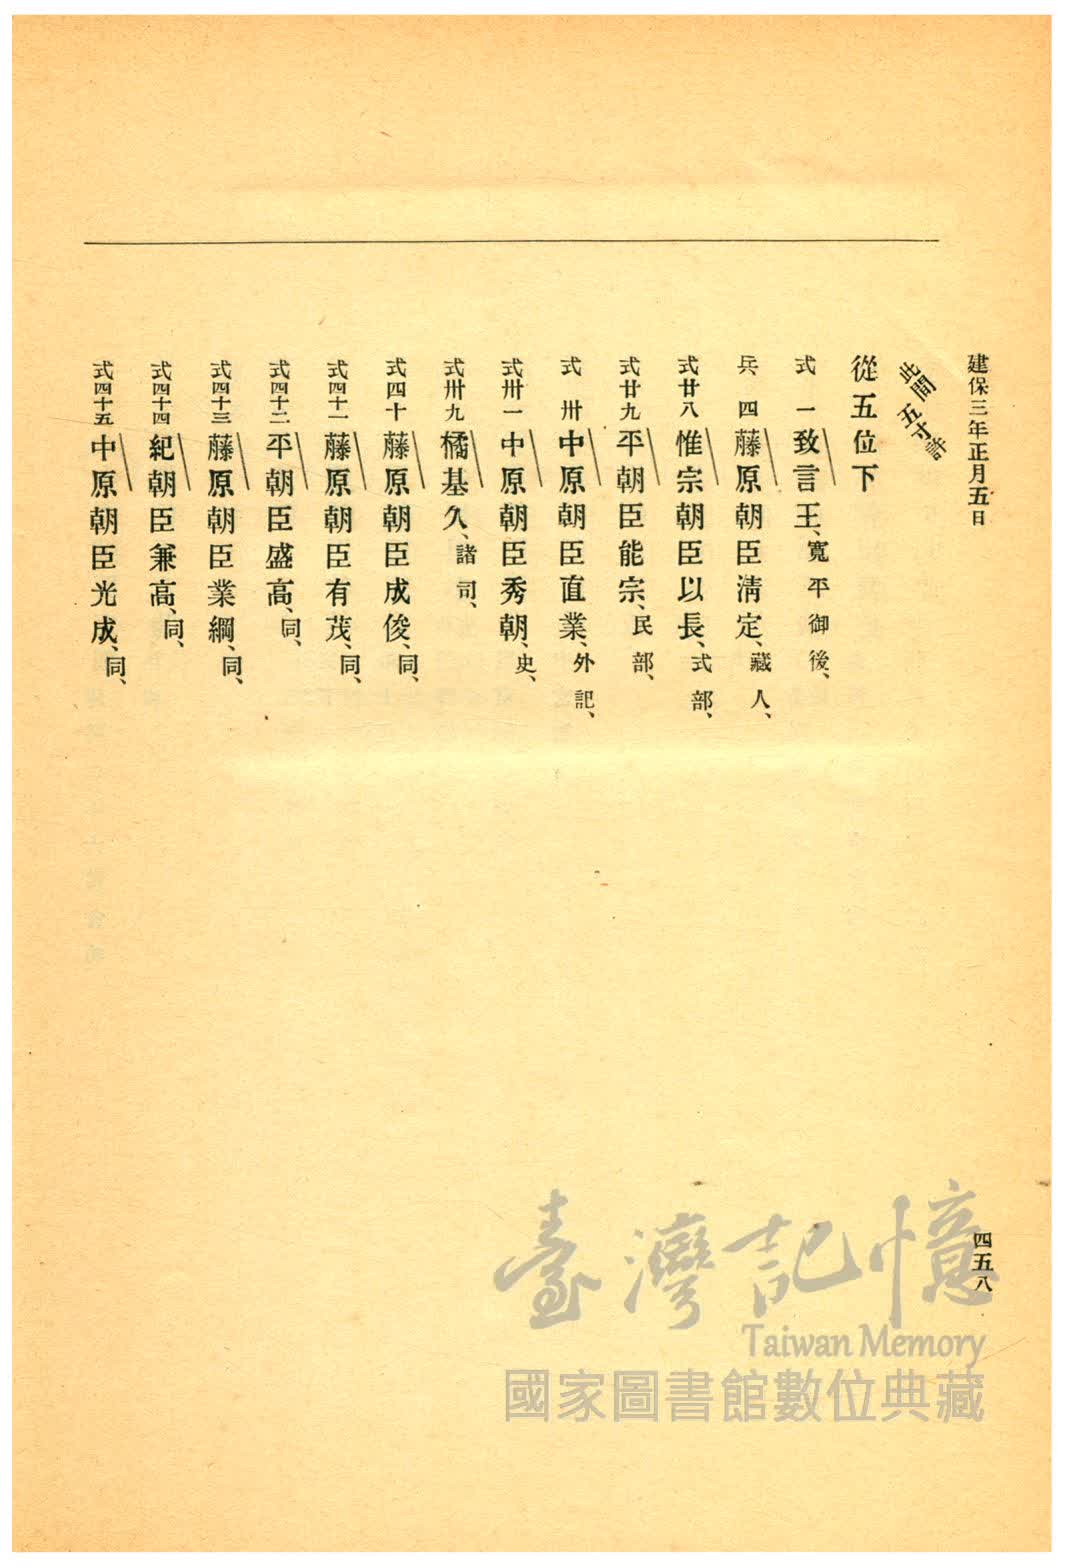 建保三年正月五日
此間五寸許
從五位下
式一致言王、寬平御後、
兵、四藤原朝臣淸定、藏人、
式廿八惟宗朝臣以長、式部、
式廿九平朝臣能宗、民部、
式卅中原朝臣直業、外記、
式卅一中原朝臣秀朝、史、
式卅九橘基久、諸司、
式四十藤原朝臣成俊、同、
式四十一藤原朝臣有茂、同、
式四十二平朝臣盛高、同、
式四十三藤原朝臣業綱、同、
式四十四紀朝臣兼高、同、
式四十五中原朝臣光成、同、
四五八
臺灣記憶
Taiwan Memory
國家圖書館數位典藏